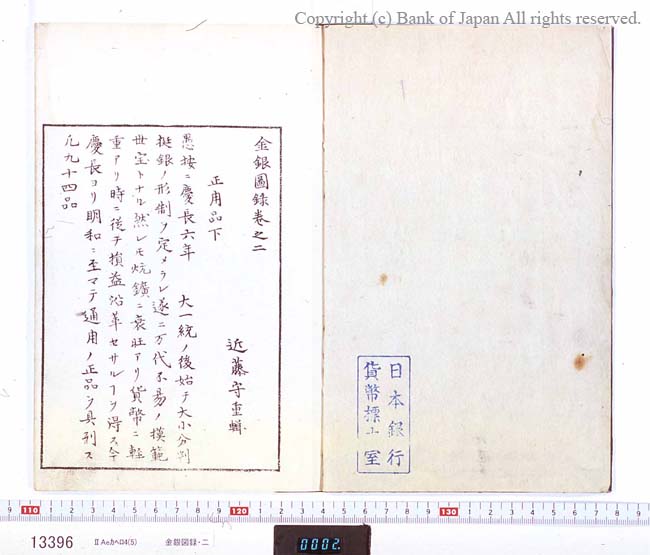 Copyright (c) Bank of Japan All rights reserved.
金銀圖録卷之二
近藤守重輯
正用品下
愚按ニ慶長六年 大一統ノ後始テ大小分判
挺銀ノ形制ヲ定メラレ遂ニ万代不易ノ模範
世宝トナル然レモ炕鑛ニ衰旺アリ貨幣ニ軽
重アリ時ニ従テ損益沿革セサルヿヲ得ス今
慶長ヨリ明和ニ至マテ通用ノ正品ヲ具列ス
凡九十四品
日本銀行
貨幣標本室
110
120
130
13396
ⅡAeカヘロ4(5)
金銀図録・二
0002.